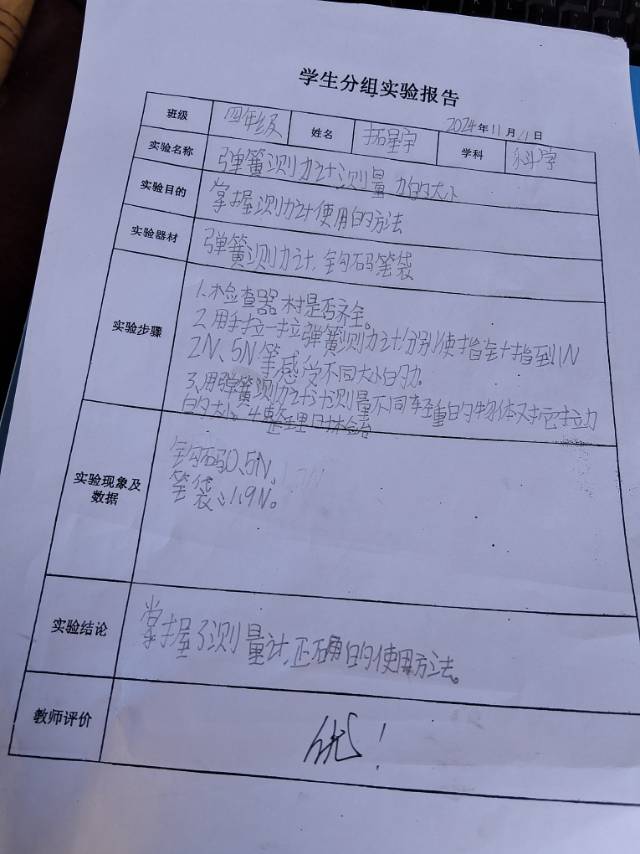 学生分组实验报告
2024年11月11日
班级 四年级 姓名 拓星宇 学科 科学
实验名称 弹簧测力计测量力的大小
实验目的 掌握测力计使用的方法
实验器材 弹簧测力计,钩码笔袋
实验步骤
1.检查器材是否齐全。
2.用手拉一拉弹簧测力计分别使指针指到1N
2N、5N等感受不同大小的力。
3.用弹簧测力计测量不同轻重的物体对它拉力
的大小 4整理器材
实验现象及数据
钩码0.5N。
笔袋:1.9N。
实验结论 掌握了测量计,正确的使用方法。
教师评价 优!